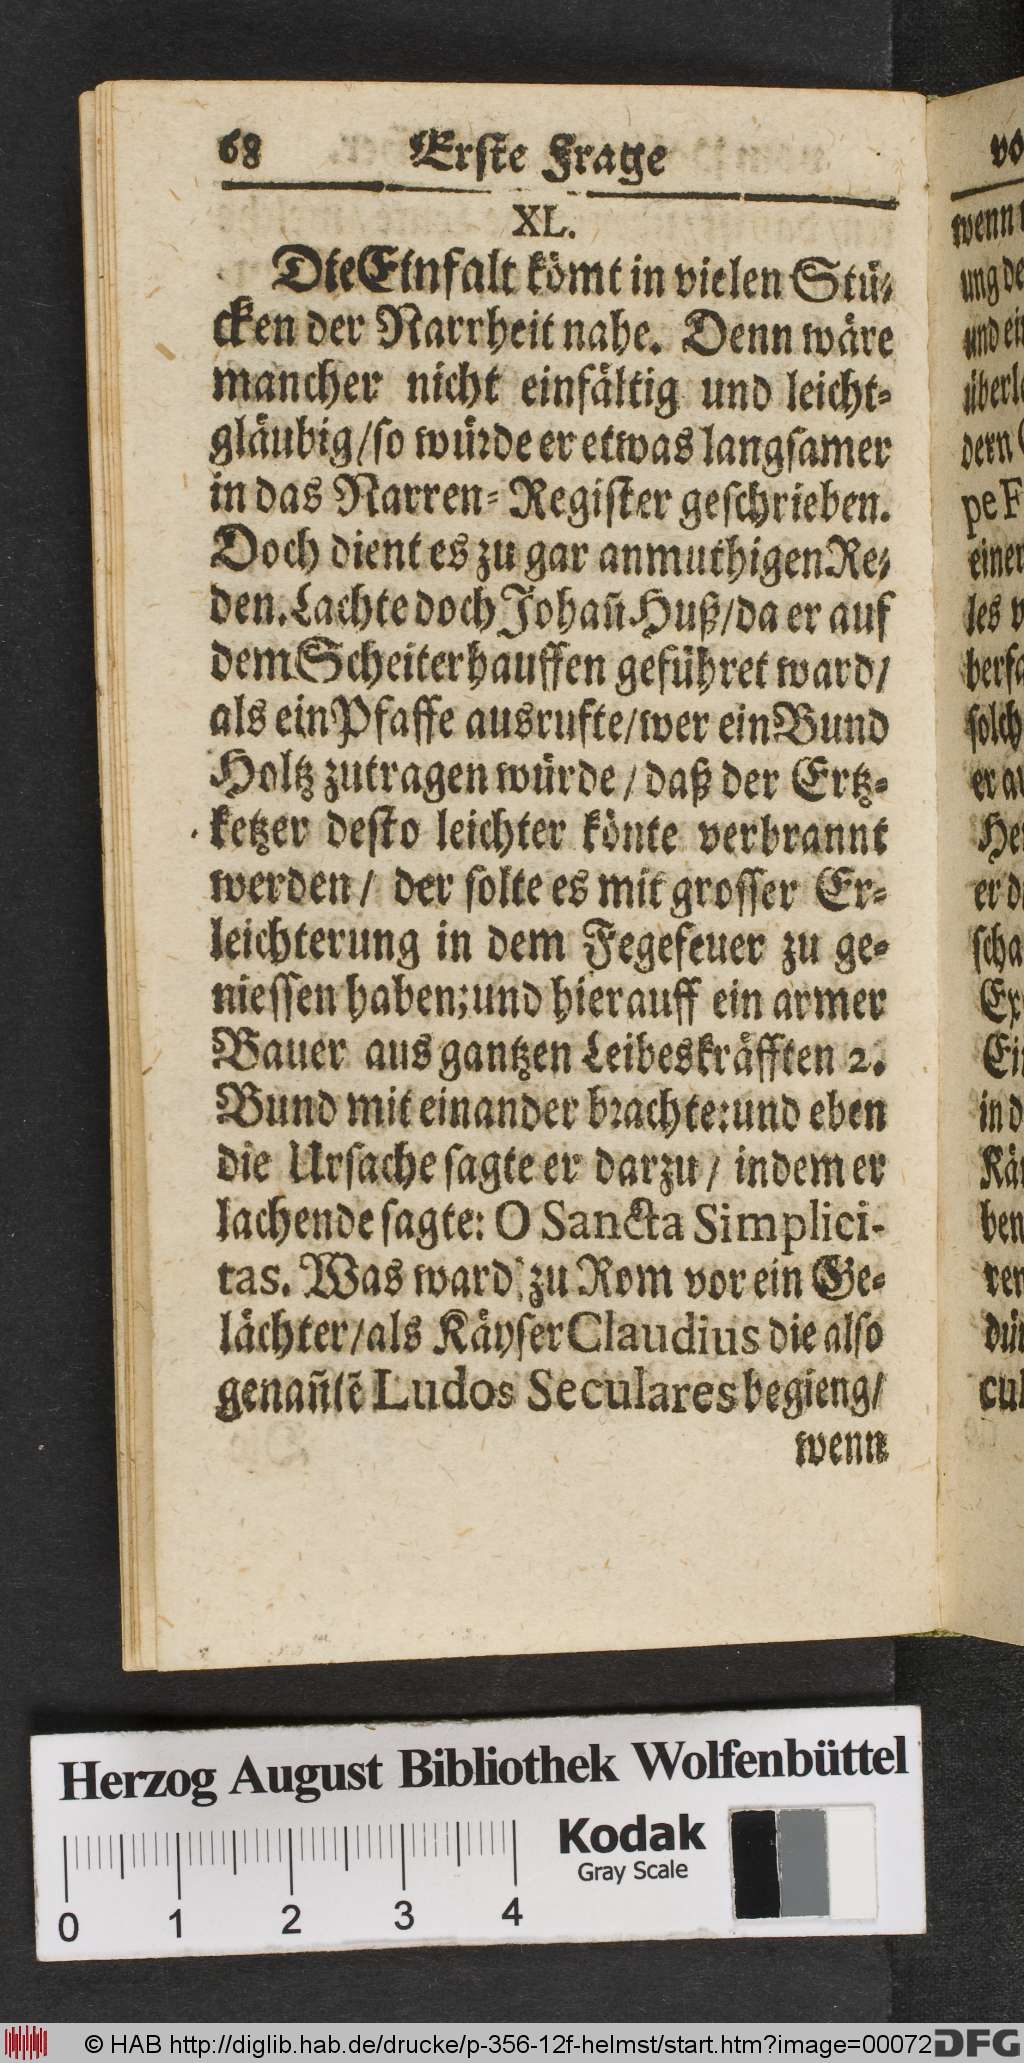 68 Erste Frage
XL.
Die Einfalt kömt in vielen Stü-
cken der Narrheit nahe. Denn wäre
mancher nicht einfältig und leicht-
gläubig/so würde er etwas langsamer
in das Narren-Register geschrieben.
Doch dient es zu gar anmuthigen Re-
den. Lachte doch Johañ Huß/da er auf
dem Scheiterhauffen geführet ward/
als ein Pfaffe ausrufte/wer ein Bund
Holtz zutragen würde/daß der Ertz-
ketzer desto leichter könte verbrannt
werden/ der solte es mit grosser Er-
leichterung in dem Fegefeuer zu ge-
niessen haben; und hierauff ein armer
Bauer aus gantzen Leibeskräfften 2.
Bund mit einander brachte: und eben
die Ursache sagte er darzu/ indem er
lachende sagte: O Sancta Simplici-
tas. Was ward zu Rom vor ein Ge-
lächter/als Käyser Claudius die also
genañtẽ Ludos Seculares begieng/
wenn
vo
wenn
ung de
und ein
überl
dern
pe F
einer
les v
bersa
solch
er au
He
er d
scha
Ex
Ei
in d
Kä
ben
ren
dü
cul
Herzog August Bibliothek Wolfenbüttel
Kodak
Gray Scale
0 1 2 3 4
© HAB http://diglib.hab.de/drucke/p-356-12f-helmst/start.htm?image=00072
DFG